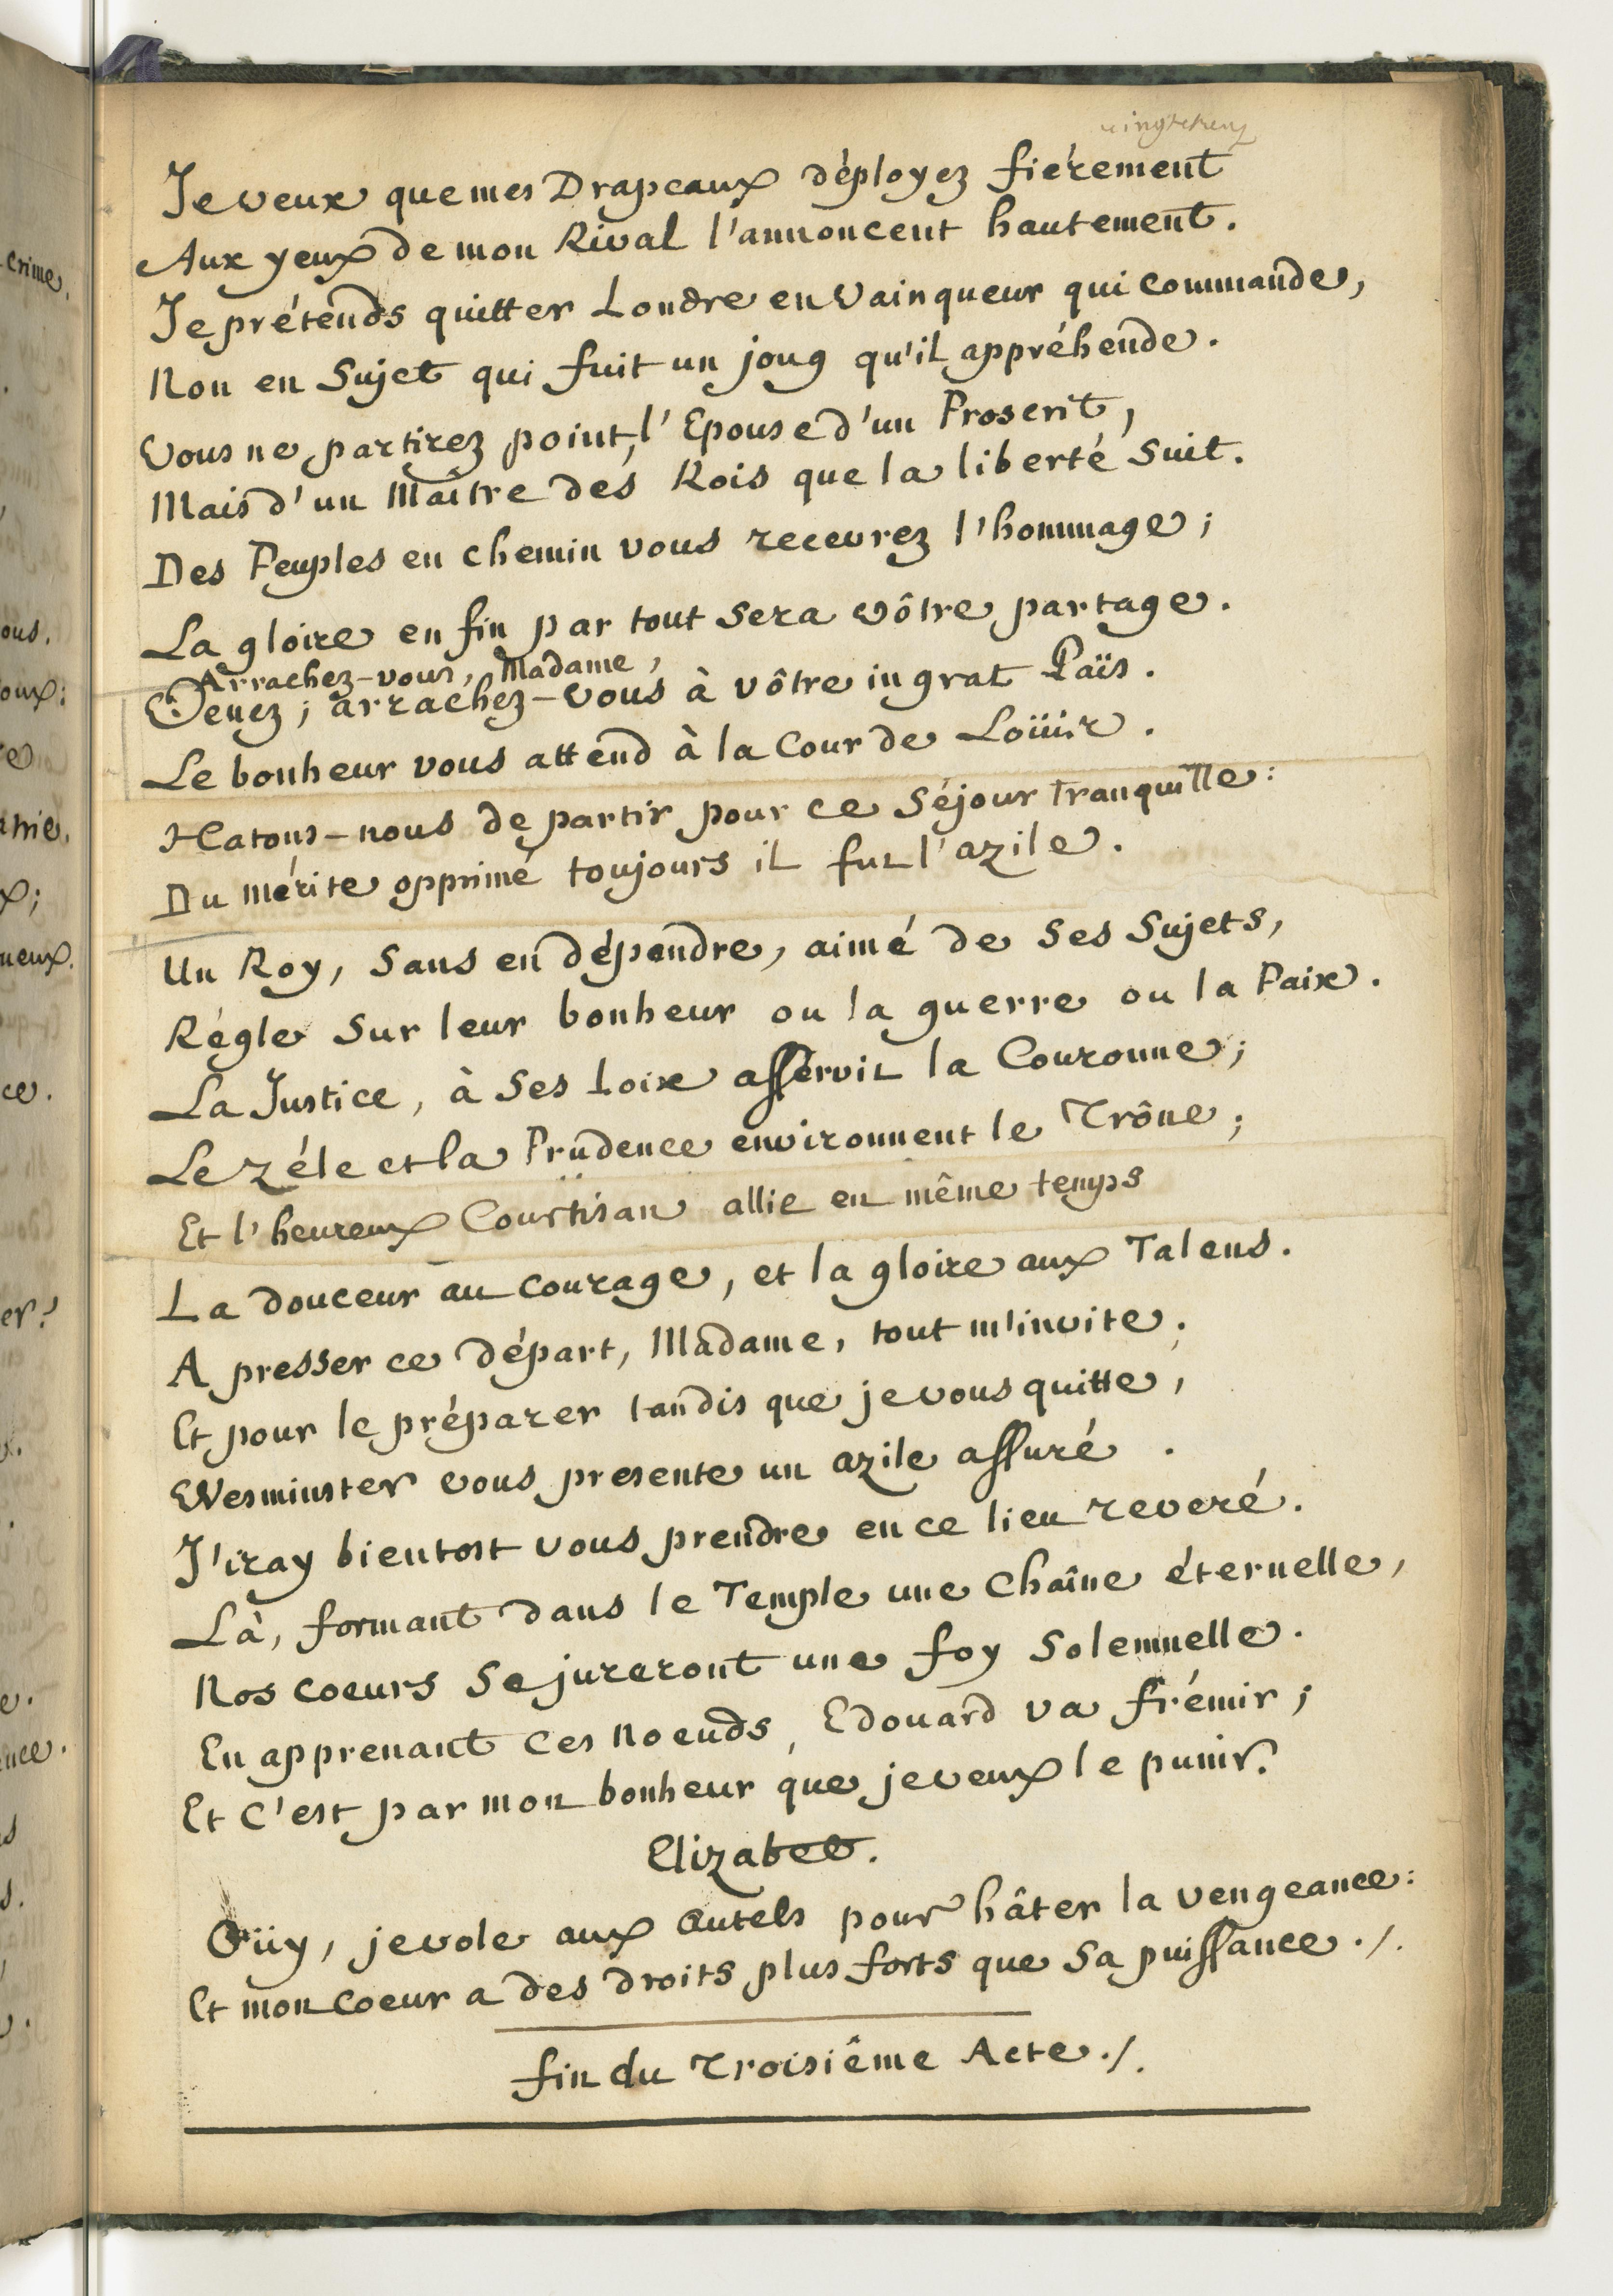 Je veux que mes Drapeaux déployez fiérement
Aux yeux de mon Rival l'annoncent hautement.
Je prétends quitter Londre en Vainqueur qui commande,
Non en Sujet qui fuit un joug qu'il appréhende.
Vous ne partirez point, l'Epouse d'un Proscrit,
Mais d'un Maître des Rois que la liberté suit.
Des Peuples en chemin vous recevrez l'hommage;
La gloire en fin par tout sera vôtre partage.
Arrachez-vous, Madame,
Venez; arrachez-vous à vôtre ingrat Païs.
Le bonheur vous attend à la Cour de Loüis.
Hatons-nous de partir pour ce Séjour tranquille:
Du mérite opprimé toujours il fut l'azile.
Un Roy, sans en dépendre, aimé de ses Sujets,
Régle sur leur bonheur ou la guerre ou la Paix.
La Justice, à ses Loix asservit la Couronne;
Le zéle et la Prudence environnent le Trône;
Et l'heureux Courtisan allie en même temps
La douceur au courage, et la gloire aux Talens.
A presser ce départ, Madame, tout m'invite;
Et pour le préparer tandis que je vous quitte,
Wesminster vous presente un azile assuré.
J'iray bientost vous prendre en ce lieu reveré.
Là, formant dans le Temple une Chaîne éternelle,
Nos coeurs se jureront une foy solemnelle.
En apprenant ces noeuds, Edouard va frémir;
Et c'est par mon bonheur que je veux le punir.
Elizabet.
Oüy, je vole aux Autels pour hâter la vengeance:
Et mon coeur a des droits plus forts que sa puissance ./.
fin du Troisiême Acte ./.